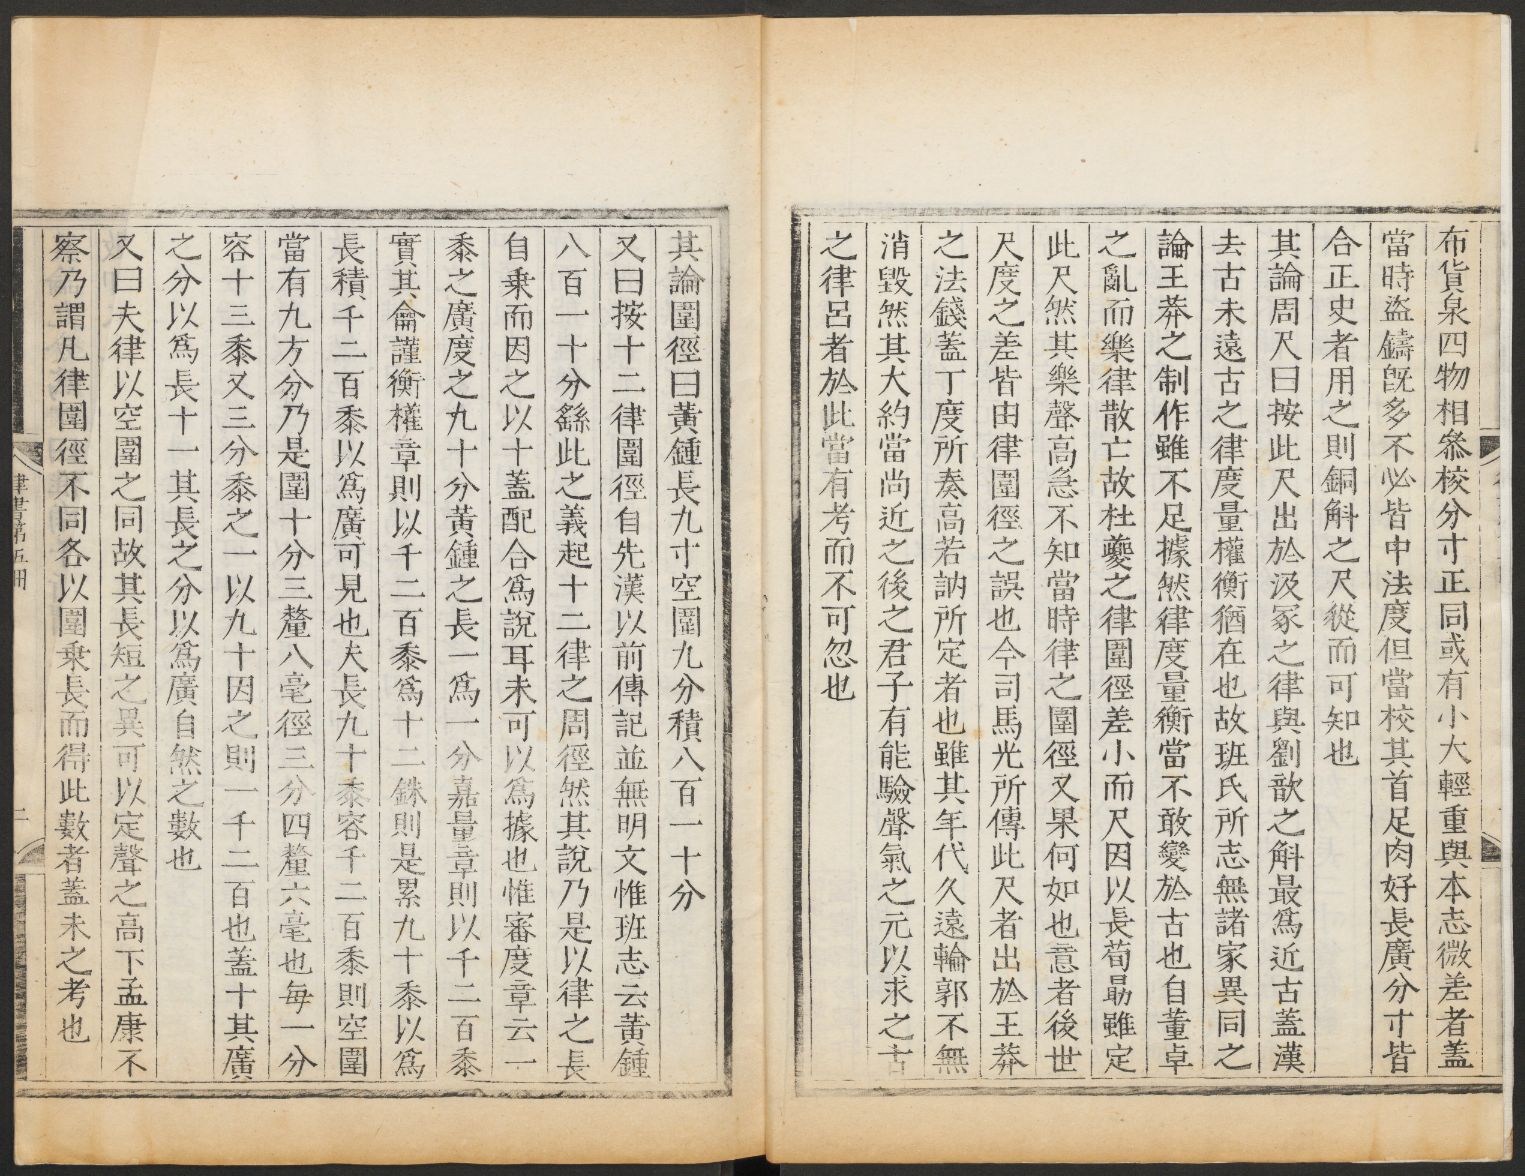 布貨泉四物相叅校分寸正同或有小大輕重與本志微差者蓋
當時盜鑄旣多不必皆中法度但當校其首足肉好長廣分寸皆
合正史者用之則銅斛之尺從而可知也
其論周尺曰按此尺出於汲冢之律與劉歆之斛最爲近古蓋漢
去古未遠古之律度量權衡猶在也故班氏所志無諸家異同之
論王莽之制作雖不足據然律度量衡當不敢變於古也自董卓
之亂而樂律散亡故杜夔之律圍徑差小而尺因以長荀勗雖定
此尺然其樂聲高急不知當時律之圍徑又果何如也意者後世
尺度之差皆由律圍徑之誤也今司馬光所傳此尺者出於王莽
之法錢蓋丁度所奏高若訥所定者也雖其年代久遠輪郭不無
消毀然其大約當尚近之後之君子有能驗聲氣之元以求之古
之律呂者於此當有考而不可忽也
其論圍徑曰黃鍾長九寸空圍九分積八百一十分
又曰按十二律圍徑自先漢以前傳記並無明文惟班志云黃鍾
八百一十分繇此之義起十二律之周徑然其說乃是以律之長
自乗而因之以十蓋配合爲說耳未可以爲據也惟審度章云一
黍之廣度之九十分黃鍾之長一爲一分嘉量章則以千二百黍
實其龠謹衡權章則以千二百黍爲十二銖則是累九十黍以爲
長積千二百黍以爲廣可見也夫長九十黍容千二百黍則空圍
當有九方分乃是圍十分三釐八毫徑三分四釐六毫也每一分
容十三黍又三分黍之一以九十因之則一千二百也蓋十其廣
之分以爲長十一其長之分以爲廣自然之數也
又曰夫律以空圍之同故其長短之異可以定聲之高下孟康不
察乃謂凡律圍徑不同各以圍乗長而得此數者蓋未之考也
律書第五冊
二